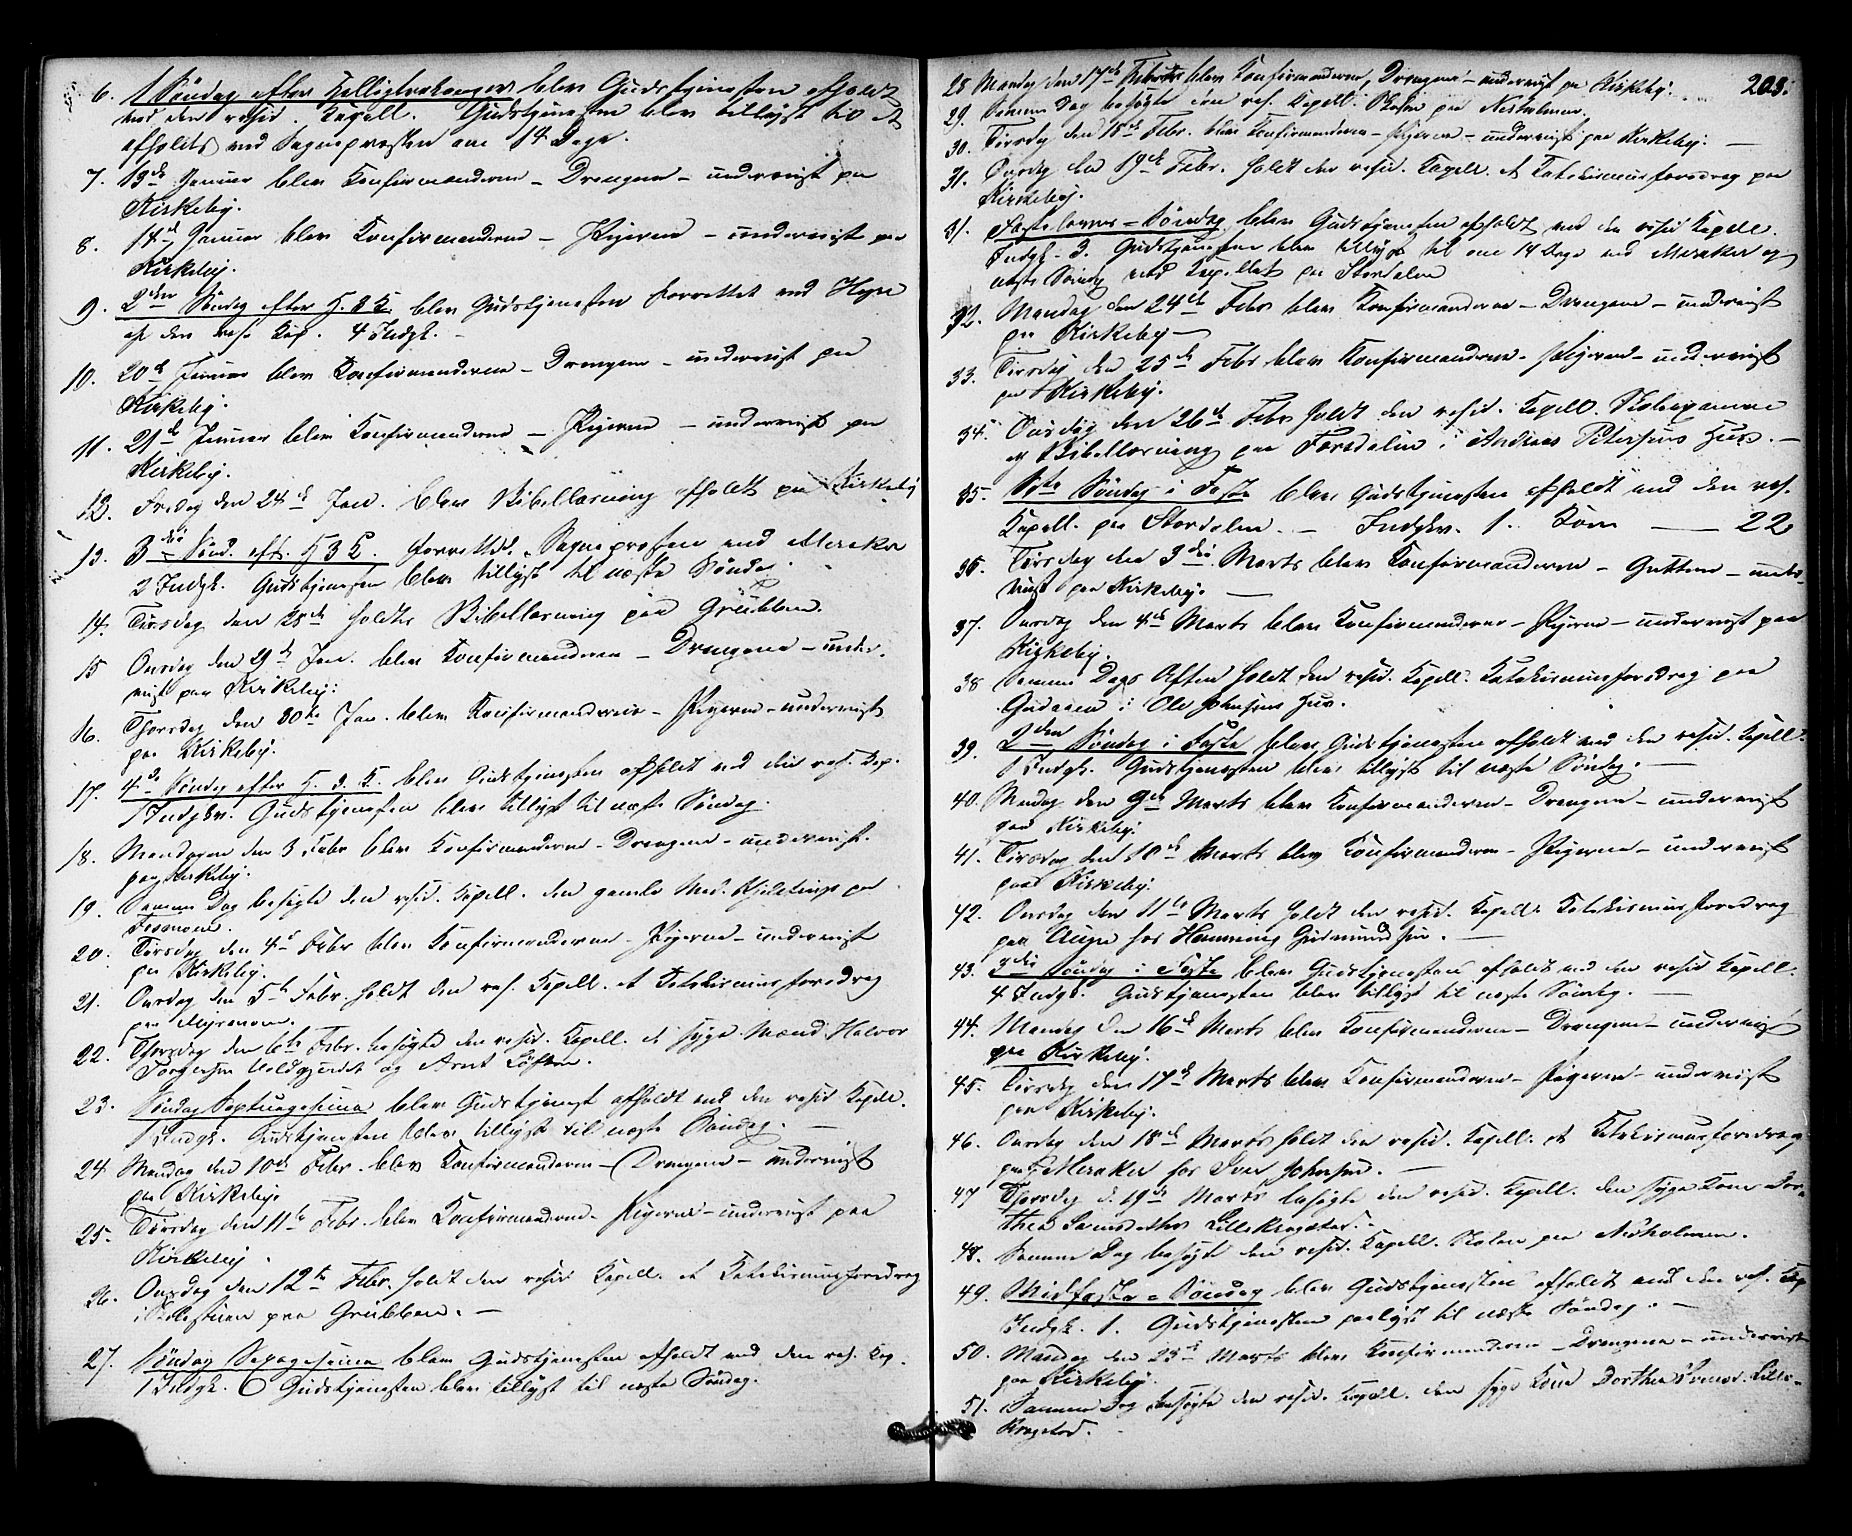 6. 1 Søndag efter Helligtrekonger blev Gudstjenesten afholdt
ved den resid. Kapell. Gudstjenesten blev tillyst til at
afholdes ved Sognepresten om 14 Dage.
7. 13de Januar blev Konfirmanderne – Drengene – undervist paa
Kirkeby.
8. 14de Januar blev Konfirmanderne – Pigerne – undervist paa
Kirkeby.
9. 2den Søndag efter H. 3 K. blev Gudstjenesten forrettet ved
af den res. Kap. 4 Indgk. –
10. 20de Januar blev Konfirmanderne – Drengene – undervist paa
Kirkeby.
11. 21de Januar blev Konfirmanderne – Pigerne – undervist paa
Kirkeby.
12. Fredag den 24de Jan. blev Bibellæsning afholdt paa Kirkeby
13. 3die Sønd. eft. H 3 K. forrettede Sognepresten ved Meraker
2 Indgk. Gudstjenesten blev tillyst til næste Søndag.
14. Tirsdag den 28de holdtes Bibellæsning paa Grubben.
15 Onsdag den 29de Jan. blev Konfirmanderne – Drengene – under-
vist paa Kirkeby.
16. Thorsdag den 30te Jan. blev Konfirmanderne – Pigerne – undervist
paa Kirkeby.
17. 4de Søndag efter H. 3. K. blev Gudstjenesten afholdt ved den res. Kap.
1 Indgkv. Gudstjenesten blev tillyst til næste Søndag.
18. Mandagen den 3 Febr blev Konfirmanderne – Drengene – undervist.
paa Kirkeby.
19. Samme Dag besøgte den resid. Kapell. den gamle Mad. paa
20. Tirsdag den 4de Febr blev Konfirmanderne – Pigerne – undervist
paa Kirkeby.
21. Onsdag den 5te Febr. holdt den res. Kapell. et Katekismusforedrag
paa
22. Thorsdag den 6te Febr. besøgte den resid. Kapell. de syge Mænd Halvor
Torgersen Voldgjerdet og Arnt Løften.
23. Søndag Septuagesima blev Gudstjenest afholdt ved den resid Kapell.
1 Indgk. Gudstjenesten blev tillyst til næste Søndag. –
24. Mandag den 10de Febr. blev Konfirmanderne – Drengene – undervist
paa Kirkeby.
25. Tirsdag den 11te Febr. blev Konfirmanderne – Pigerne – undervist paa
Kirkeby.
26. Onsdag den 12te Febr. holdt den resid Kapell. et Katekismusforedrag
i Skolestuen paa Grubben. –
27. Søndag Sexagesima blev Gudstjenesten afholdt ved den res. Kap.
1 Indgk. Gudstjenesten blev tillyst til næste Søndag.
208.
28 Mandag den 17de Febr blev Konfirmanderne, Drengene – undervist paa Kirkeby.
29. Samme Dag besøgte den res. Kapell. Skolen paa Nesholmen.
30. Tirsdag den 18de Febr. blev Konfirmanderne – Pigerne – undervist paa Kirkeby. –
31. Onsdag den 19de Febr. holdt den resid. Kapell. et Katekismusforedrag paa
Kirkeby.
31. Fastelavns-Søndag blev Gudstjenesten afholdt ved den resid Kapell.
Indgk. 3. Gudstjenesten blev tillyst til om 14 Dage ved Meraker og
næste Søndag ved Kapellet paa Stordalen
32. Mandag den 24de Febr blev Konfirmanderne – Drengene – undervist
paa Kirkeby –
33. Tirsdag den 25de Febr blev Konfirmanderne – Pigerne – undervist
paa Kirkeby.
34. Onsdag den 26de Febr holdt den resid. Kapell. Skoleexamen
og Bibellæsning paa Fersdalen i Andreas Petersens Hus. –
35. 1ste Søndag i Faste blev Gudstjenesten afholdt ved den res.
Kapell. paa Stordalen. – Indgkv. 1. Kom – 22
36. Tirsdag den 3die Marts blev Konfirmanderne – Guttene – under-
vist paa Kirkeby. –
37. Onsdag den 4de Marts blev Konfirmanderne – Pigerne – undervist paa
Kirkeby.
38 Samme Dags Aften holdt den resid. Kapell. Katekismusforedrag paa
Gudaaen i Ole Johnsens Hus.
39. 2den Søndag i Faste blev Gudstjenesten afholdt ved den resid. Kapell.
1 Indgk. Gudstjenesten blev tillyst til næste Søndag. –
40. Mandag den 9de Marts blev Konfirmanderne – Drengene – undervist
paa Kirkeby.
41. Tirsdag den 10de Marts blev Konfirmanderne – Pigerne – undervist
paa Kirkeby.
42. Onsdag den 11te Marts holdt den resid. Kapell. Katekismusforedrag
paa hos Henning Gudmundsen. –
43. 3die Søndag i Faste blev Gudstjenesten afholdt ved den resid Kapell.
4 Indgk. Gudstjenesten blev tillyst til næste Søndag. –
44. Mandag den 16de Marts blev Konfirmanderne – Drengene – undervist
paa Kirkeby.
45. Tirsdag den 17de Marts blev Konfirmanderne – Pigerne – undervist
paa Kirkeby.
46. Onsdag den 18de Marts holdt den resid. Kapell. et Katekismusforedrag
paa Meraker hos Iver Johnsen. –
47 Thorsdag d. 19de Marts besøgte den resid. Kapell. den syge Kone Dor-
thea Lillekragstad. –
48. Samme Dag besøgte den resid. Kapell. Skolen paa Nesholmen.
49. Midfaste-Søndag blev Gudstjenesten afholdt ved den res. Kap
Indgk. 1. Gudstjenesten paalyst til næste Søndag. –
50. Mandag den 23de Marts blev Konfirmanderne – Drengene – undervist
paa Kirkeby.
51. Samme Dag besøgte den resid. Kapell. den syge Kone Dorthea Lille-
Kragstad. –